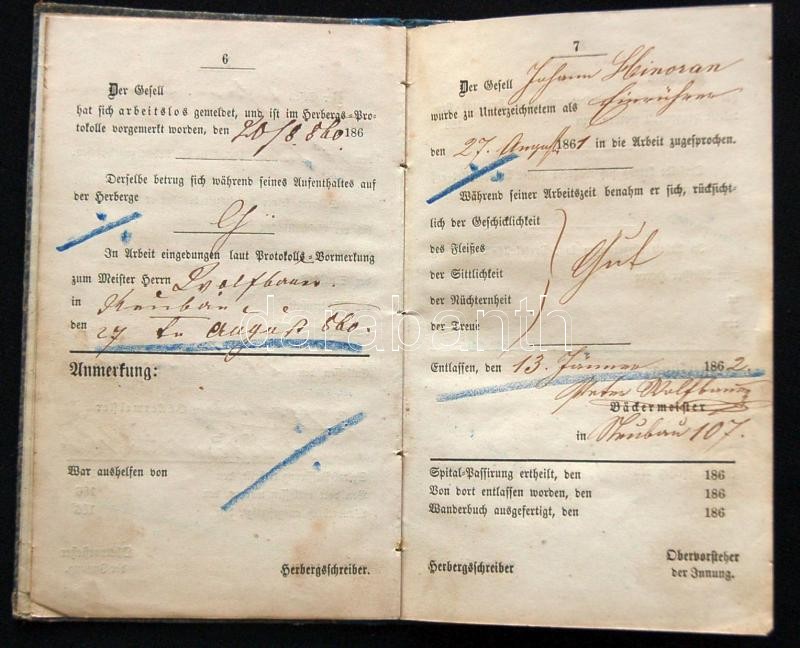 6
Der Gesell
hat sich arbeitslos gemeldet, und ist im Herbergs-Pro-
tokolle vorgemerkt worden, den 20/8 860. 186
Derselbe betrug sich während seines Aufenthaltes auf
der Herberge
In Arbeit eingedungen laut Protokolls-Vormerkung
zum Meister Herrn Wolfbauer.
in Neubau
den 27 August 860.
Anmerkung:
War aushelfen von
Herbergschreiber.
7
Der Gesell Johann Hinoran
wurde zu Unterzeichnetem als
den 27. August 1861 in die Arbeit zugesprochen.
Während seiner Arbeitszeit benahm er sich, rücksicht-
lich der Geschicklichkeit
des Fleißes
der Sittlichkeit Gut
der Nüchternheit
der Treue
Entlassen, den 13. Jänner 1862.
Peter Wolfbauer
Bäckermeister
in Neubau 107.
Spital-Passirung ertheilt, den 186
Von dort entlassen worden, den 186
Wanderbuch ausgefertigt, den 186
Herbergschreiber
Obervorsteher
der Innung.
darabanth